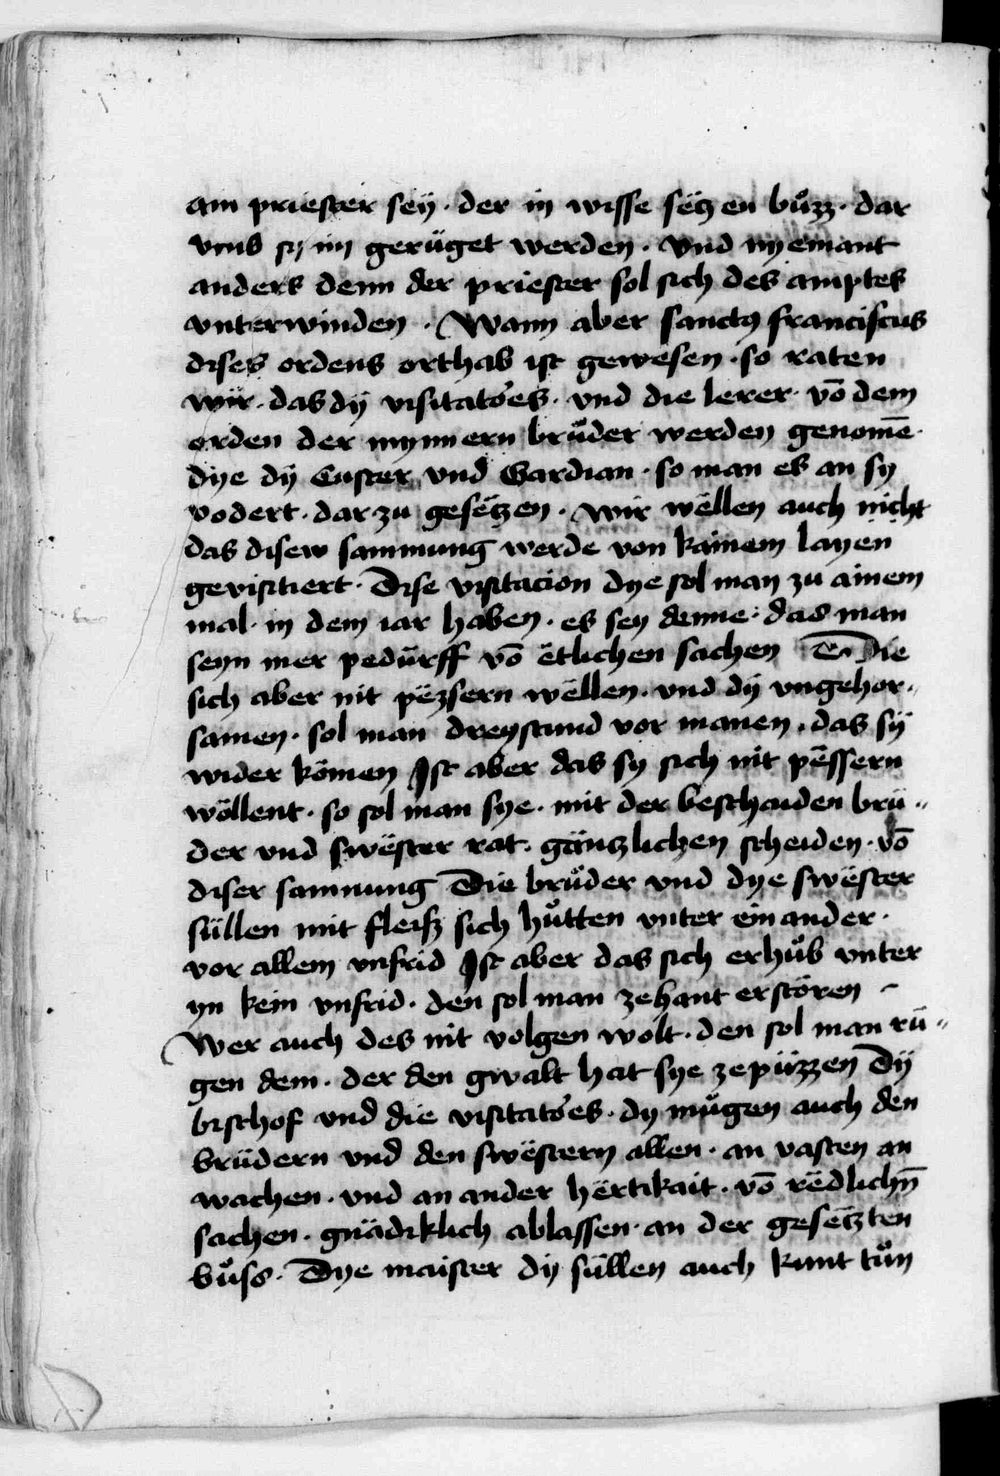 ain priester seÿ · der in wisse sëtzen bůzz · dar
vmb sÿ im gerüget werden · vnd nyemant
anders denn der priester sol sich des amptes
vnterwinden · Wann aber sanctus franciscus
dises ordens orthab ist gewesen · so raten
wir · das dÿ visitatores · vnd die lerer · võ dem
orden der mynnern brůder werden genomē ·
dye dÿ Custer vnd Gardian · so man es an sy
vodert · dar zu gesëtzen · wir wëllen auch nicht
das disew samnung werde von kainem layen
gevisitiert · Dise visitacion dye sol man zu ainem
mal · in dem iar haben · es sey denne · das man
seyn mer pedürff võ ëtlichen sachen Die
sich aber nit pëzsern wëllen · vnd dÿ vngehor〃
samen · sol man dreystund vor manen · das sÿ
wider kömen Ist aber das sy sich nit pëssern
wöllent · so sol man sye · mit der beschaiden brü〃
der vnd swëster rat · gäntzlichen scheiden · võ
diser samnung Die brůder vnd dye swëster
süllen mit fleisz sich hůtten vnter ein ander ·
vor allem vnfrid Ist aber das sich erhůb vnter
yn kein vnfrid · den sol man zehant erstören
Wer auch des nit volgen wolt · den sol man rü〃
gen dem · der den gwalt hat sye ze püzzen Dÿ
bischof vnd die visitatores · dy můgen auch den
brüdern vnd den swëstern allen · an vasten an
wachen · vnd an ander hërtikait · võ rëdlichn̄
sachen · gnädiklich ablassen · an der gesëtzten
bůss · Dye maister dÿ süllen auch kunt tůn